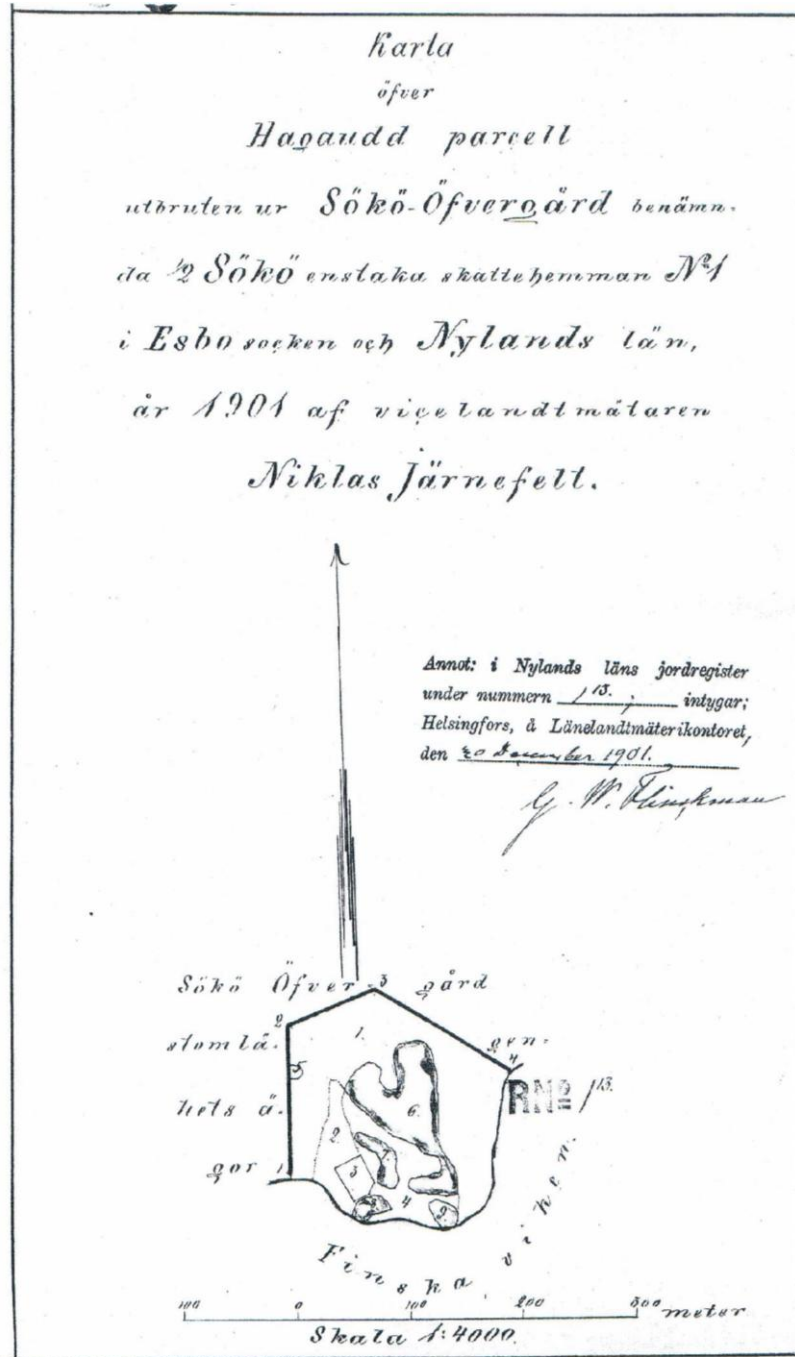 Karta
öfver
Hagaudd parcell
utbruten ur Sökö-Öfvergård benämn-
da 1/2 Sökö enstaka skattehemman No 1
i Esbo socken och Nylands län,
år 1901 af vicelandtmätaren
Niklas Järnefelt.
Annot: i Nylands läns jordregister
under nummern 1 13. intygar;
Helsingfors, å Länelandtmäterikontoret,
den 20 December 1901.
G. W.
Sökö Öfver- 3 gård
2
stomlä. 1. gen.
4
5
hets ä. 6. RNo 1 13.
2.
gor 1 3
4
9
Finska viken.
100 0 100 200 300 meter
Skala 1:4000.